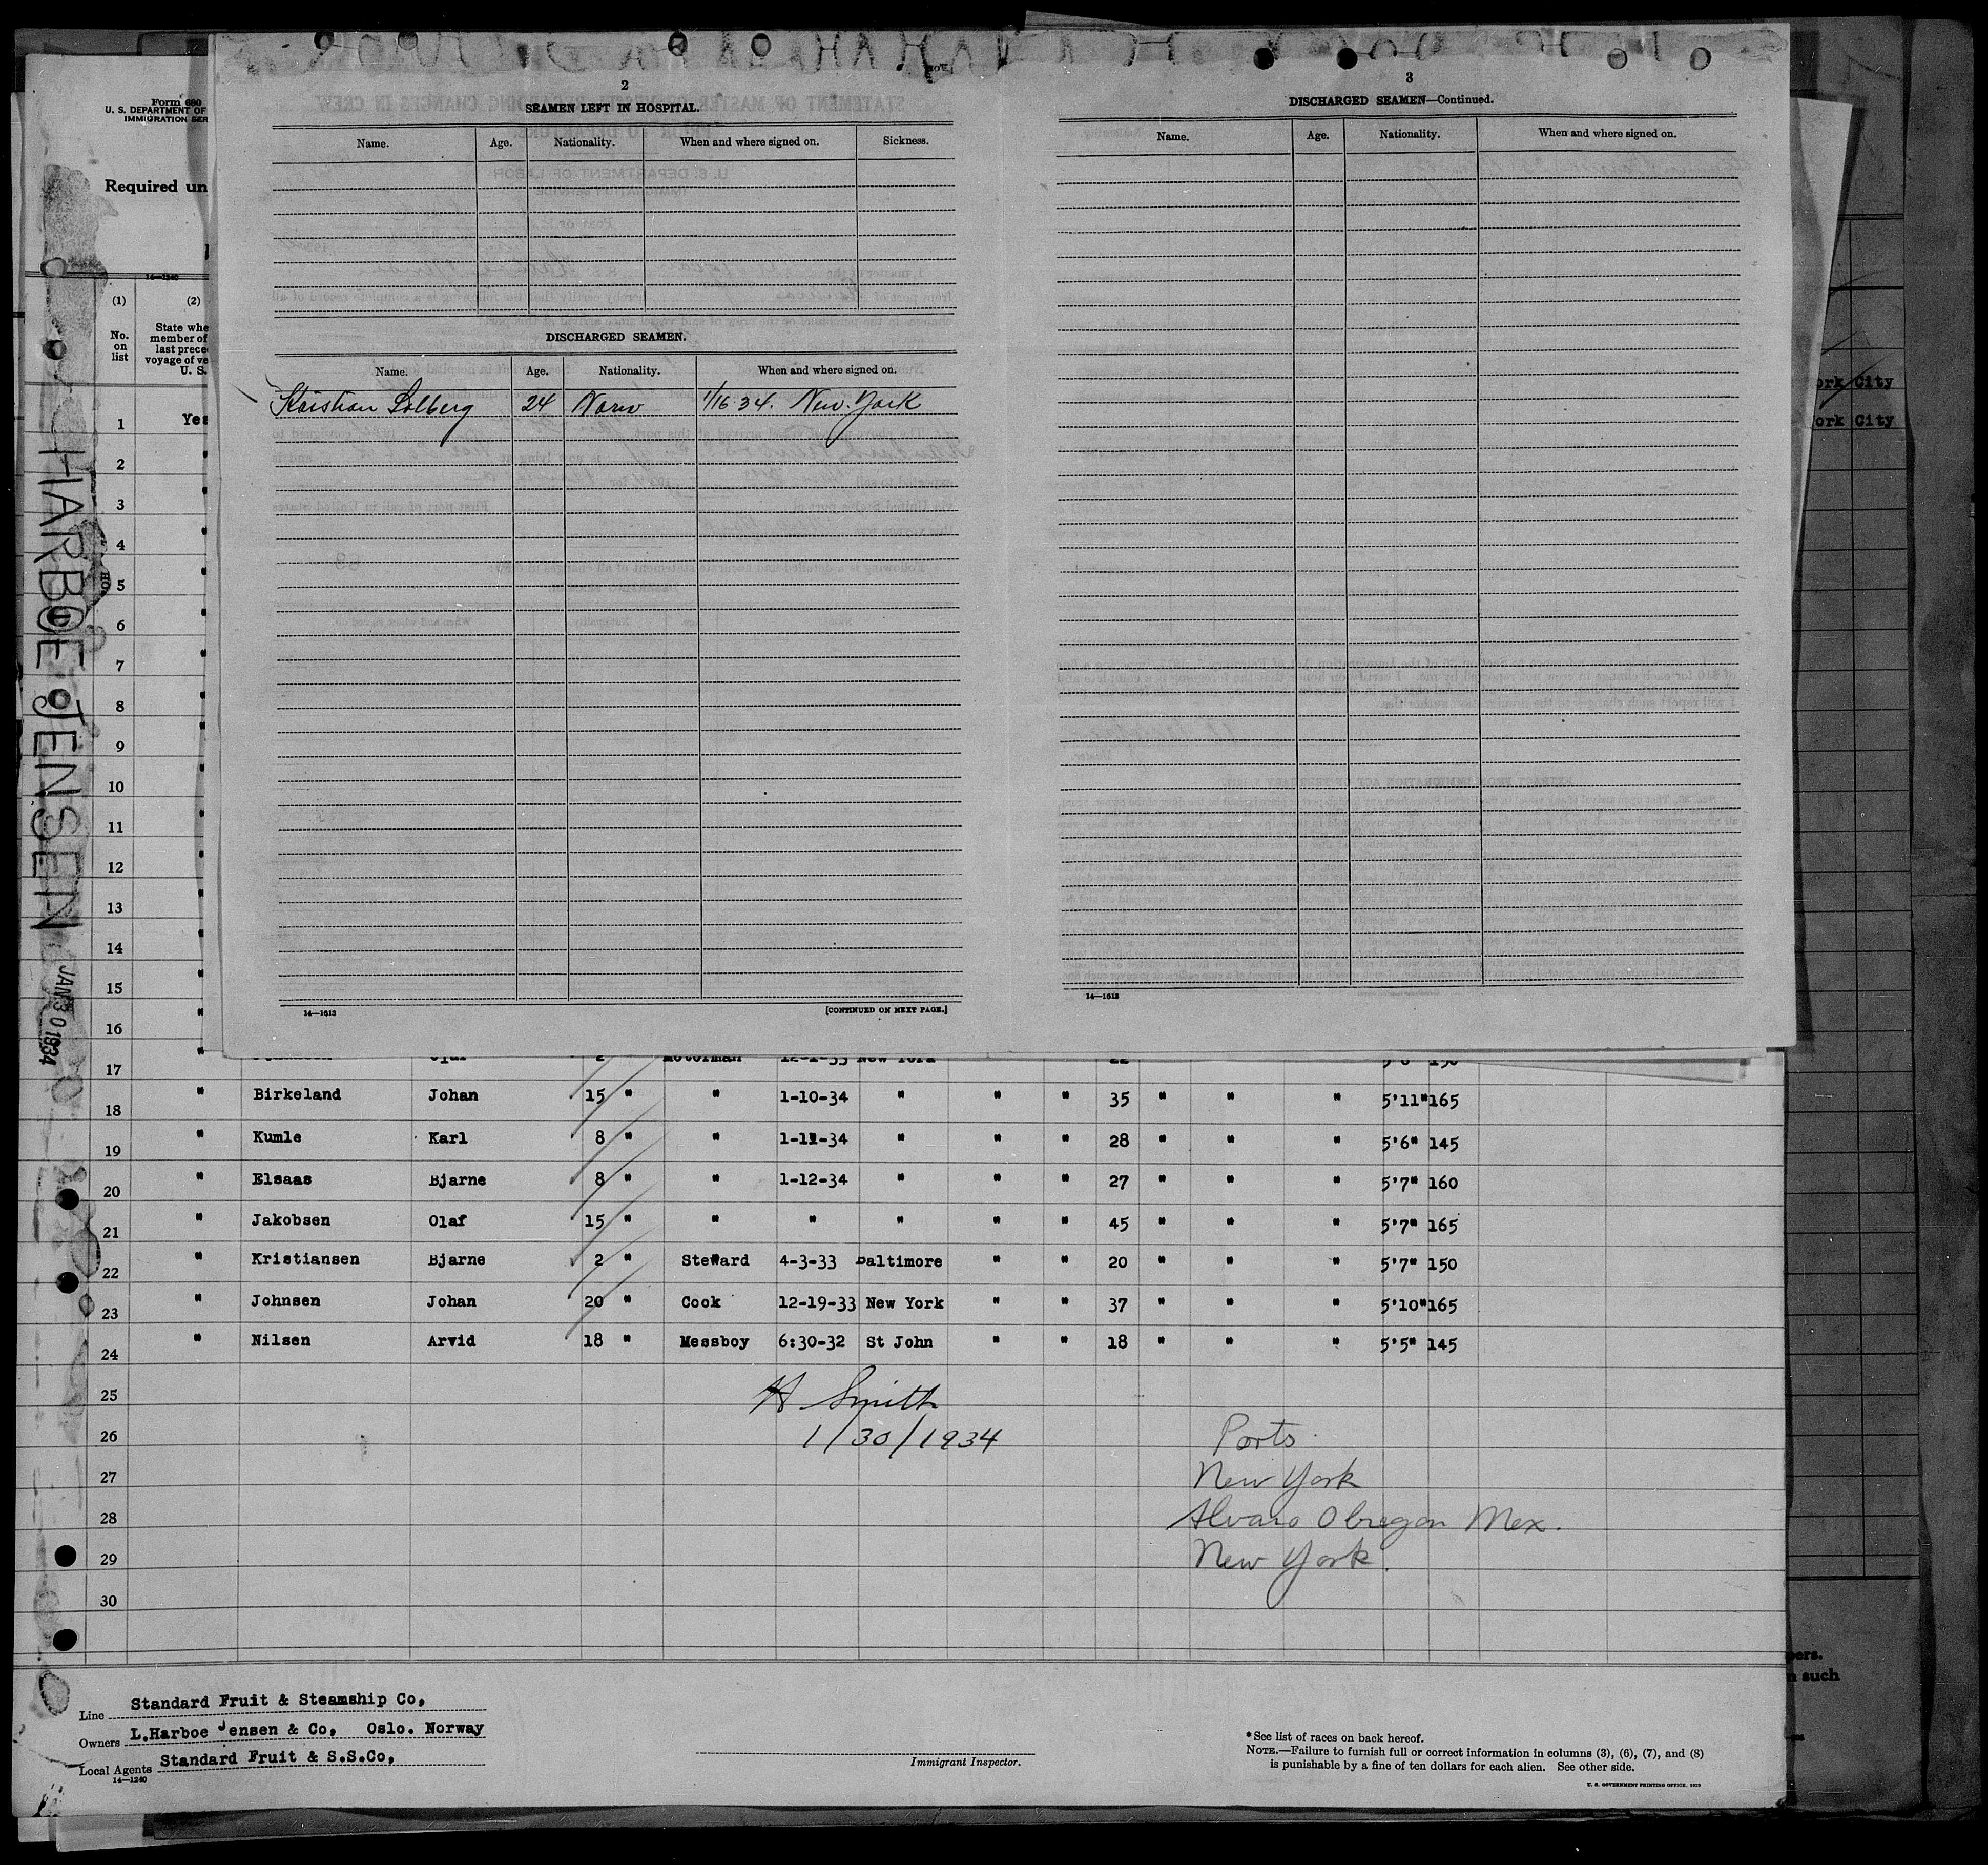 Form 680
U. S. DEPARTMENT OF
IMMIGRATION SER
Required un
14—1240
(1) (2)
No. on list
State whe
member of
last prece
voyage of ve
U. S.
HARBOE JENSEN
JAN 30 1934
2
SEAMEN LEFT IN HOSPITAL.
Name. Age. Nationality. When and where signed on. Sickness.
DISCHARGED SEAMEN.
Name. Age. Nationality. When and where signed on.
Kristian Solberg 24 Norw 1/16 34. New York
14—1613 [CONTINUED ON NEXT PAGE.]
3
DISCHARGED SEAMEN—Continued.
Name. Age. Nationality. When and where signed on.
14—1613
ork City
ork City
1 Yes
2
3
4
5
6
7
8
9
10
11
12
13
14
15
16
17 " Olaf 2 " Motorman 12-1-33 New York 22
18 " Birkeland Johan 15 " " 1-10-34 " " " 35 " " " 5'11" 165
19 " Kumle Karl 8 " " 1-11-34 " " " 28 " " " 5'6" 145
20 " Elsaas Bjarne 8 " " 1-12-34 " " " 27 " " " 5'7" 160
21 " Jakobsen Olaf 15 " " " " " " 45 " " " 5'7" 165
22 " Kristiansen Bjarne 2 " Steward 4-3-33 Baltimore " " 20 " " " 5'7" 150
23 " Johnsen Johan 20 " Cook 12-19-33 New York " " 37 " " " 5'10" 165
24 " Nilsen Arvid 18 " Messboy 6:30-32 St John " " 18 " " " 5'5" 145
25 H Smith
26 1/30/1934 Ports
27 New York
28 Alvaro Obregon Mex.
29 New York.
30
Line Standard Fruit & Steamship Co,
Owners L.Harboe Jensen & Co, Oslo. Norway
Local Agents Standard Fruit & S.S.Co,
14—1240
Immigrant Inspector.
* See list of races on back hereof.
NOTE.—Failure to furnish full or correct information in columns (3), (6), (7), and (8)
is punishable by a fine of ten dollars for each alien. See other side.
U. S. GOVERNMENT PRINTING OFFICE. 1929
pers.
n such